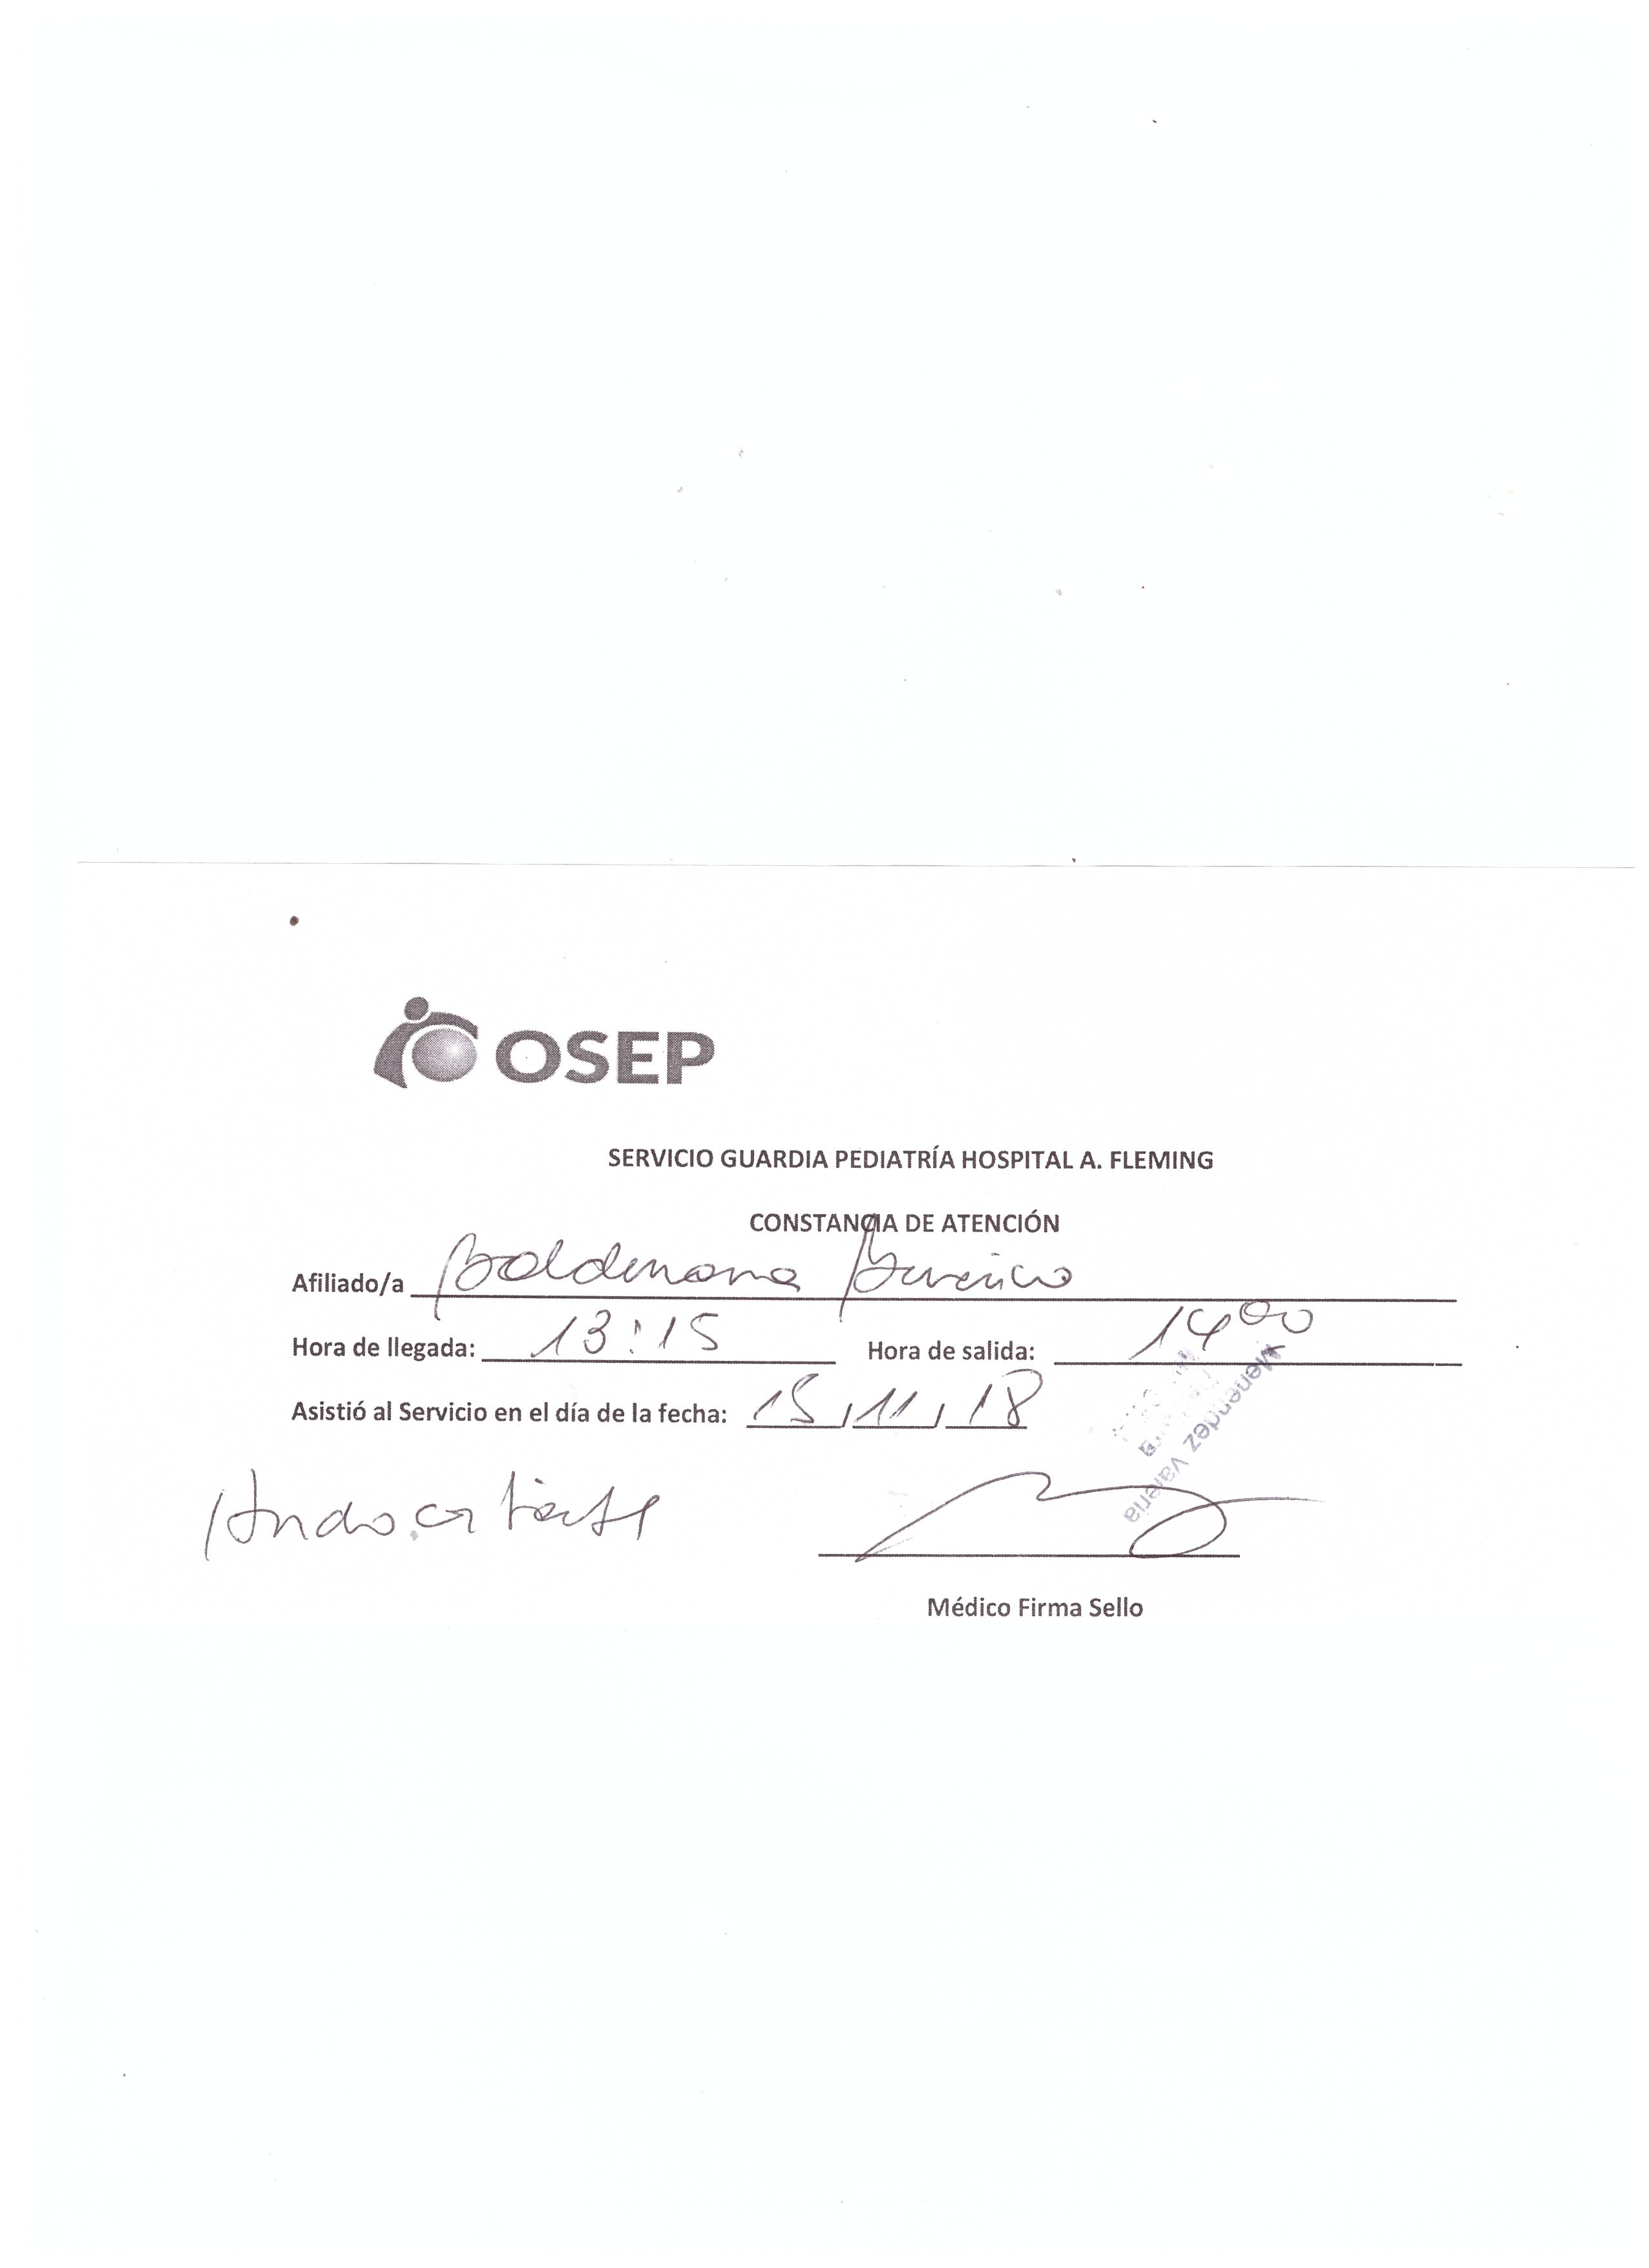 OSEP
SERVICIO GUARDIA PEDIATRÍA HOSPITAL A. FLEMING
CONSTANCIA DE ATENCIÓN
Afiliado/a
Hora de llegada: 13:15 Hora de salida: 14 00
Asistió al Servicio en el día de la fecha: 15/11/18
Menendez Valeria
Médico Firma Sello